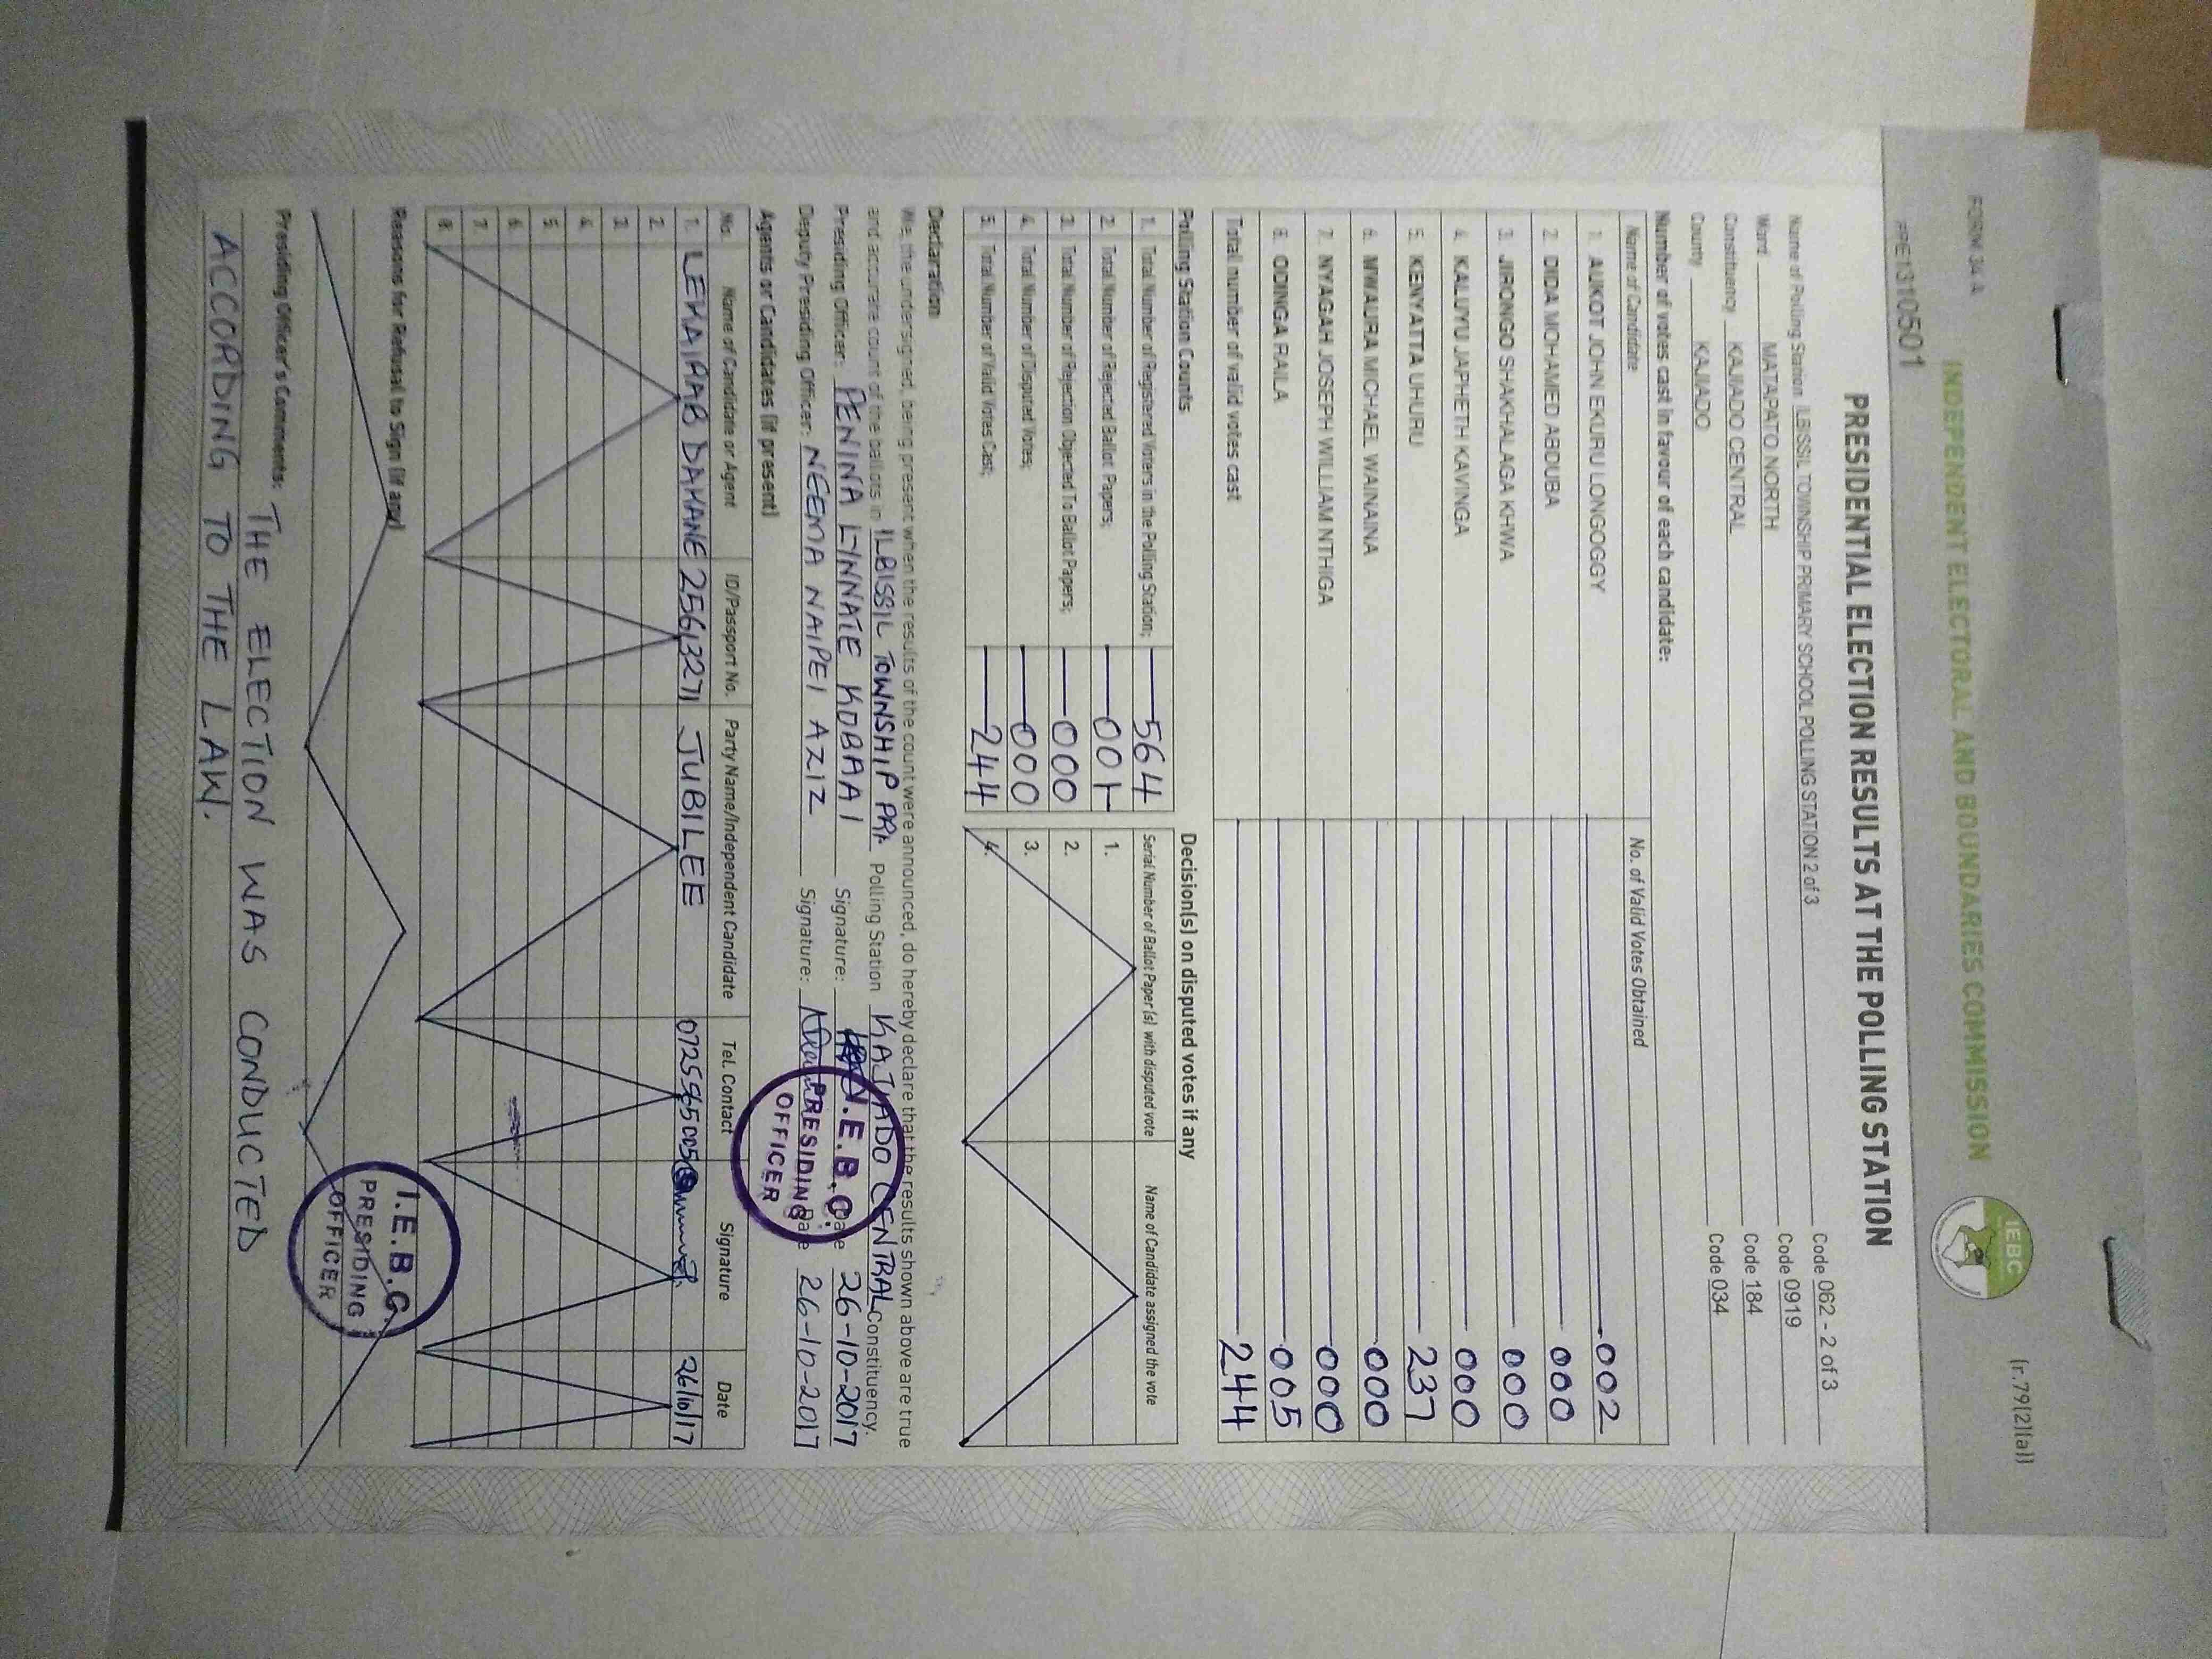 FORM 34 A
(r.79(2)(a))
INDEPENDENT ELECTORAL AND BOUNDARIES COMMISSION
IEBC
PPE1310501
PRESIDENTIAL ELECTION RESULTS AT THE POLLING STATION
Name of Polling Station ILBISSIL TOWNSHIP PRIMARY SCHOOL POLLING STATION 2 of 3 Code 062 - 2 of 3
Ward MATAPATO NORTH Code 0919
Constituency KAJIADO CENTRAL Code 184
County KAJIADO Code 034
Number of votes cast in favour of each candidate:
Name of Candidate No. of Valid Votes Obtained
1. AUKOT JOHN EKURU LONGOGGY 002
2. DIDA MOHAMED ABDUBA 000
3. JIRONGO SHAKHALAGA KHWA 000
4. KALUYU JAPHETH KAVINGA 000
5. KENYATTA UHURU 237
6. MWAURA MICHAEL WAINAINA 000
7. NYAGAH JOSEPH WILLIAM NTHIGA 000
8. ODINGA RAILA 005
Total number of valid votes cast 244
Polling Station Counts Decision(s) on disputed votes if any
1. Total Number of Registered Voters in the Polling Station; 564 Serial Number of Ballot Paper(s) with disputed vote Name of Candidate assigned the vote
2. Total Number of Rejected Ballot Papers; 001 1.
3. Total Number of Rejection Objected To Ballot Papers; 000 2.
4. Total Number of Disputed Votes; 000 3.
5. Total Number of Valid Votes Cast; 244 4.
Declaration
We, the undersigned, being present when the results of the count were announced, do hereby declare that the results shown above are true
and accurate count of the ballots in ILBISSIL TOWNSHIP PRI Polling Station KAJIADO CENTRAL Constituency.
Presiding Officer: PENINA LYNNATE KOBAAI Signature: Date 26-10-2017
Deputy Presiding Officer: NEEMA NAIPEI AZIZ Signature: Date 26-10-2017
I.E.B.C.
PRESIDING
OFFICER
Agents or Candidates (if present)
No. Name of Candidate or Agent ID/Passport No. Party Name/Independent Candidate Tel. Contact Signature Date
1. LEMAIRAB DAMANE 25613271 JUBILEE 26/10/17
2.
3.
4.
5.
6.
7.
8.
Reasons for Refusal to Sign (if any)
I.E.B.C.
PRESIDING
OFFICER
Presiding Officer's Comments: THE ELECTION WAS CONDUCTED
ACCORDING TO THE LAW.